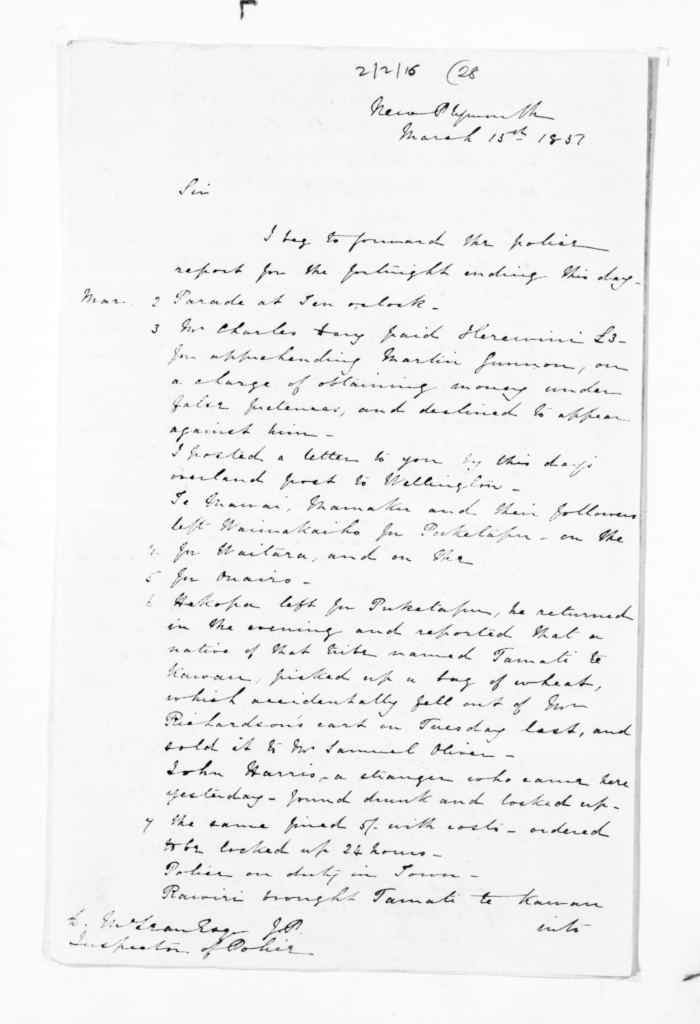 2/2/16 (28
New Plymouth
March 15th 1851
Sir
I beg to forward the police
report for the fortnight ending this day -
Mar. 2 Parade at Ten o'clock -
3 Mr Charles paid Herewini £3 -
for apprehending Martin Gunnon, on
a charge of obtaining money under
false pretences, and declined to appear
against him -
I posted a letter to you by this day's
overland post to Wellington -
Te Mawai, Mamaku and their followers
left Waiwakaiho for Puketapu - on the
4 for Waitara, and on the
5 for Onairo -
6 Hakopa left for Puketapu, he returned
in the evening and reported that a
native of that tribe named Tamati te
Kawau, picked up a bag of wheat,
which accidentally fell out of Mr
Richardson's cart on Tuesday last, and
sold it to Mr Samuel Oliver -
John Harris, a stranger who came here
yesterday - found drunk and locked up -
7 the same fined 5/- with costs - ordered
to be locked up 24 hours -
Police on duty in Town -
Rawiri brought Tamati te Kawau
into
D. McLean Esqr J.P.
Inspector of Police